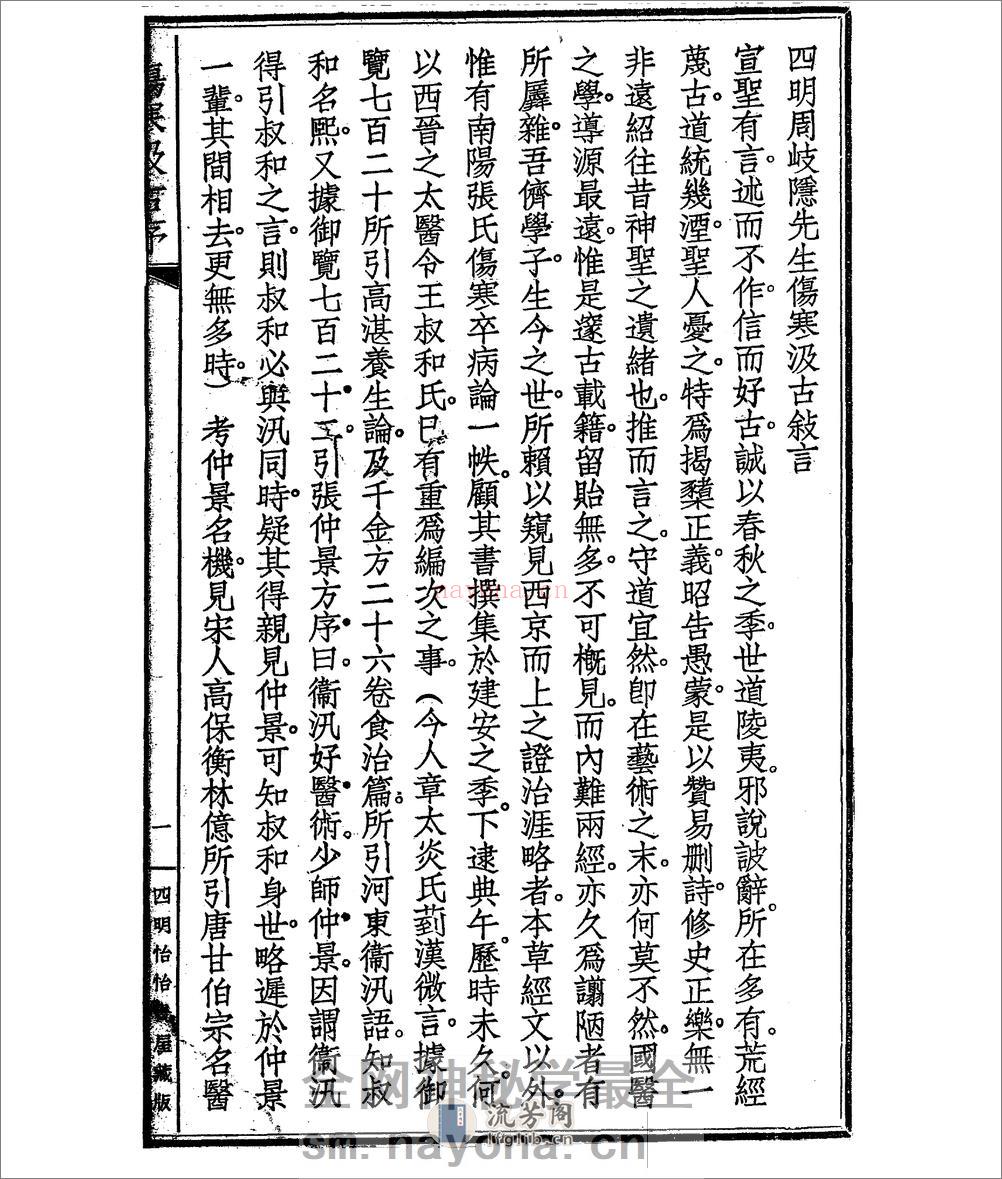 四明周岐隱先生傷寒汲古敍言
宣聖有言。述而不作。信而好古。誠以春秋之季。世道陵夷。邪說詖辭。所在多有。荒經
蔑古。道統幾湮。聖人憂之。特爲揭櫫正義。昭告愚蒙。是以贊易刪詩。修史正樂。無一
非遠紹往昔神聖之遺緒也。推而言之。守道宜然。卽在藝術之末。亦何莫不然。國醫
之學。導源最遠。惟是邃古載籍。留貽無多。不可概見。而內難兩經。亦久爲譾陋者有
所羼雜。吾儕學子。生今之世。所賴以窺見西京而上之證治涯略者。本草經文以外。
惟有南陽張氏傷寒卒病論一帙。顧其書撰集於建安之季。下逮典午。歷時未久。何
以西晉之太醫令王叔和氏。巳有重爲編次之事。(今人章太炎氏菿漢微言。據御
覽七百二十所引高湛養生論。及千金方二十六卷食治篇。所引河東衞汛語。知叔
和名熙。又據御覽七百二十二引張仲景方序曰。衞汛好醫術。少師仲景。因謂衞汛
得引叔和之言。則叔和必與汛同時。疑其得親見仲景。可知叔和身世。略遲於仲景
一輩。其間相去。更無多時。)考仲景名機。見宋人高保衡林億所引唐甘伯宗名醫
傷寒汲古序
一
四明怡怡書屋藏版
nayona.cn
全网神秘学最全
流芳阁
lfglib.cn
sm.nayona.cn